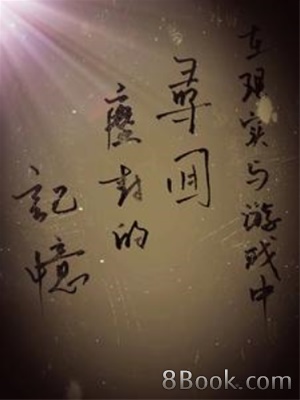 在现实与游戏中
尋回
塵封的
記憶
8Book.com